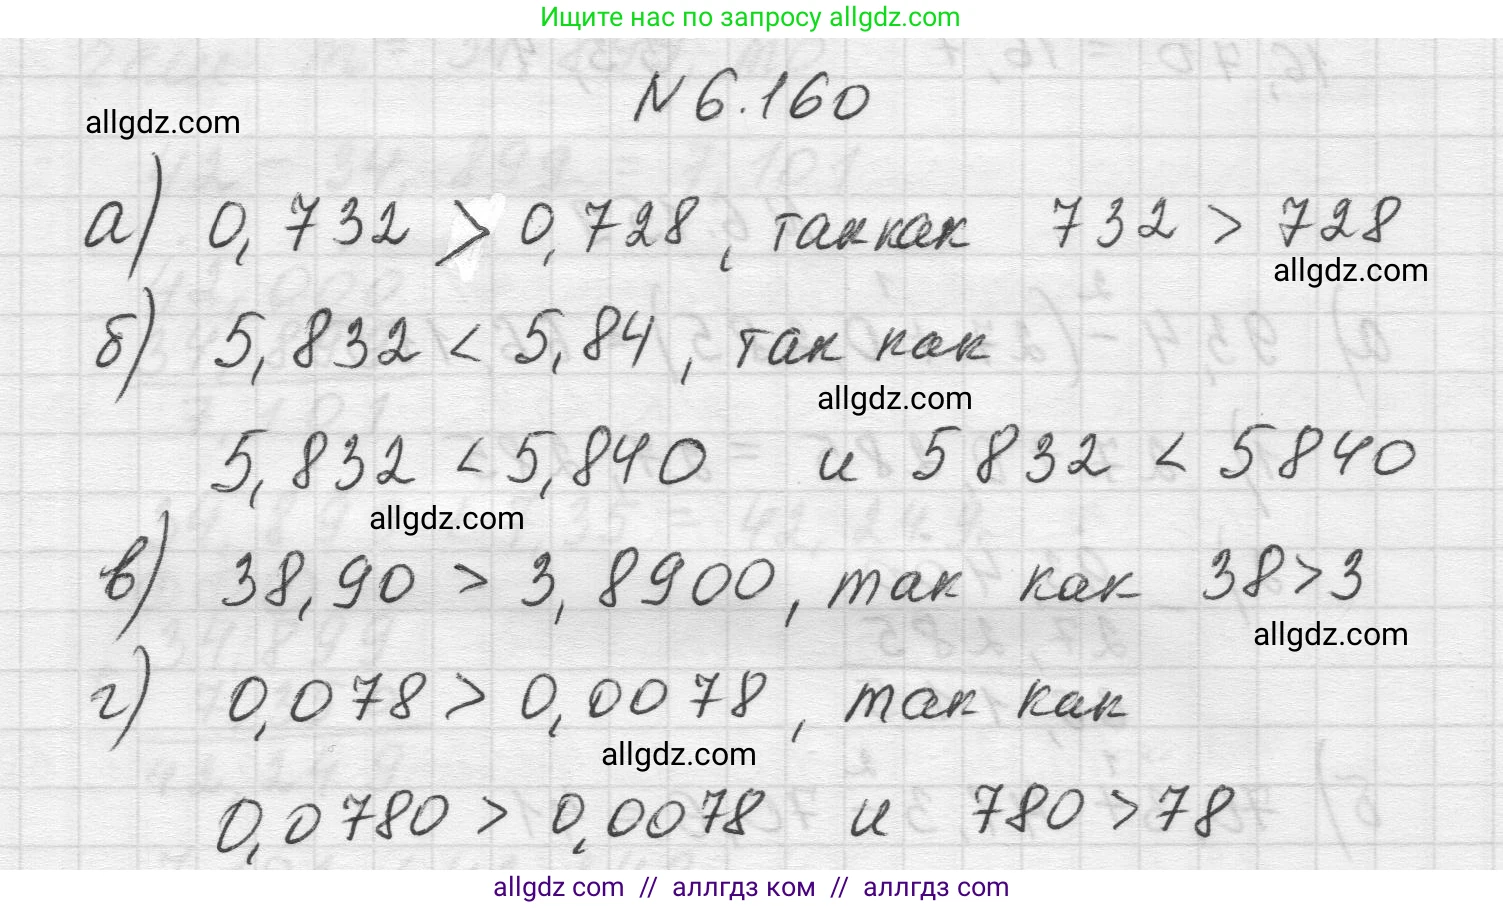 Ищите нас по запросу allgdz.com
N 6.160
allgdz.com
а) 0,732 > 0,728, так как 732 > 728
allgdz.com
б) 5,832 < 5,84, так как
allgdz.com
5,832 < 5,840 и 5832 < 5840
allgdz.com
в) 38,90 > 3,8900, так как 38 > 3
allgdz.com
г) 0,078 > 0,0078, так как
allgdz.com
0,0780 > 0,0078 и 780 > 78
allgdz com // аллгдз ком // аллгдз com